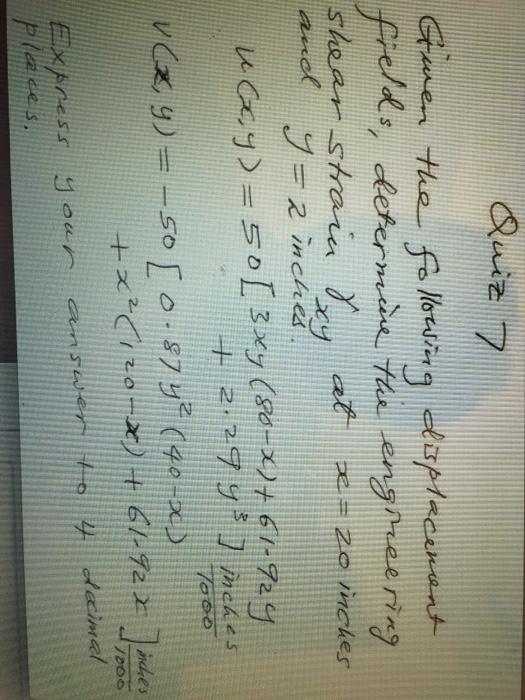 Quiz 7
Given the following displacement
fields, determine the engineering
shear strain γxy at x = 20 inches
and y = 2 inches.
u(x,y) = 50[3xy(80-x) + 61.92y
+ 2.29y³] inches/1000
v(x,y) = -50[0.87y²(40-x)
+ x²(120-x) + 61.92x] inches/1000
Express your answer to 4 decimal
places.